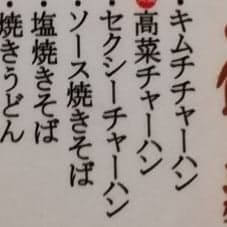 ・キムチチャーハン
高菜チャーハン
・セクシーチャーハン
・ソース焼きそば
・塩焼きそば
・焼きうどん